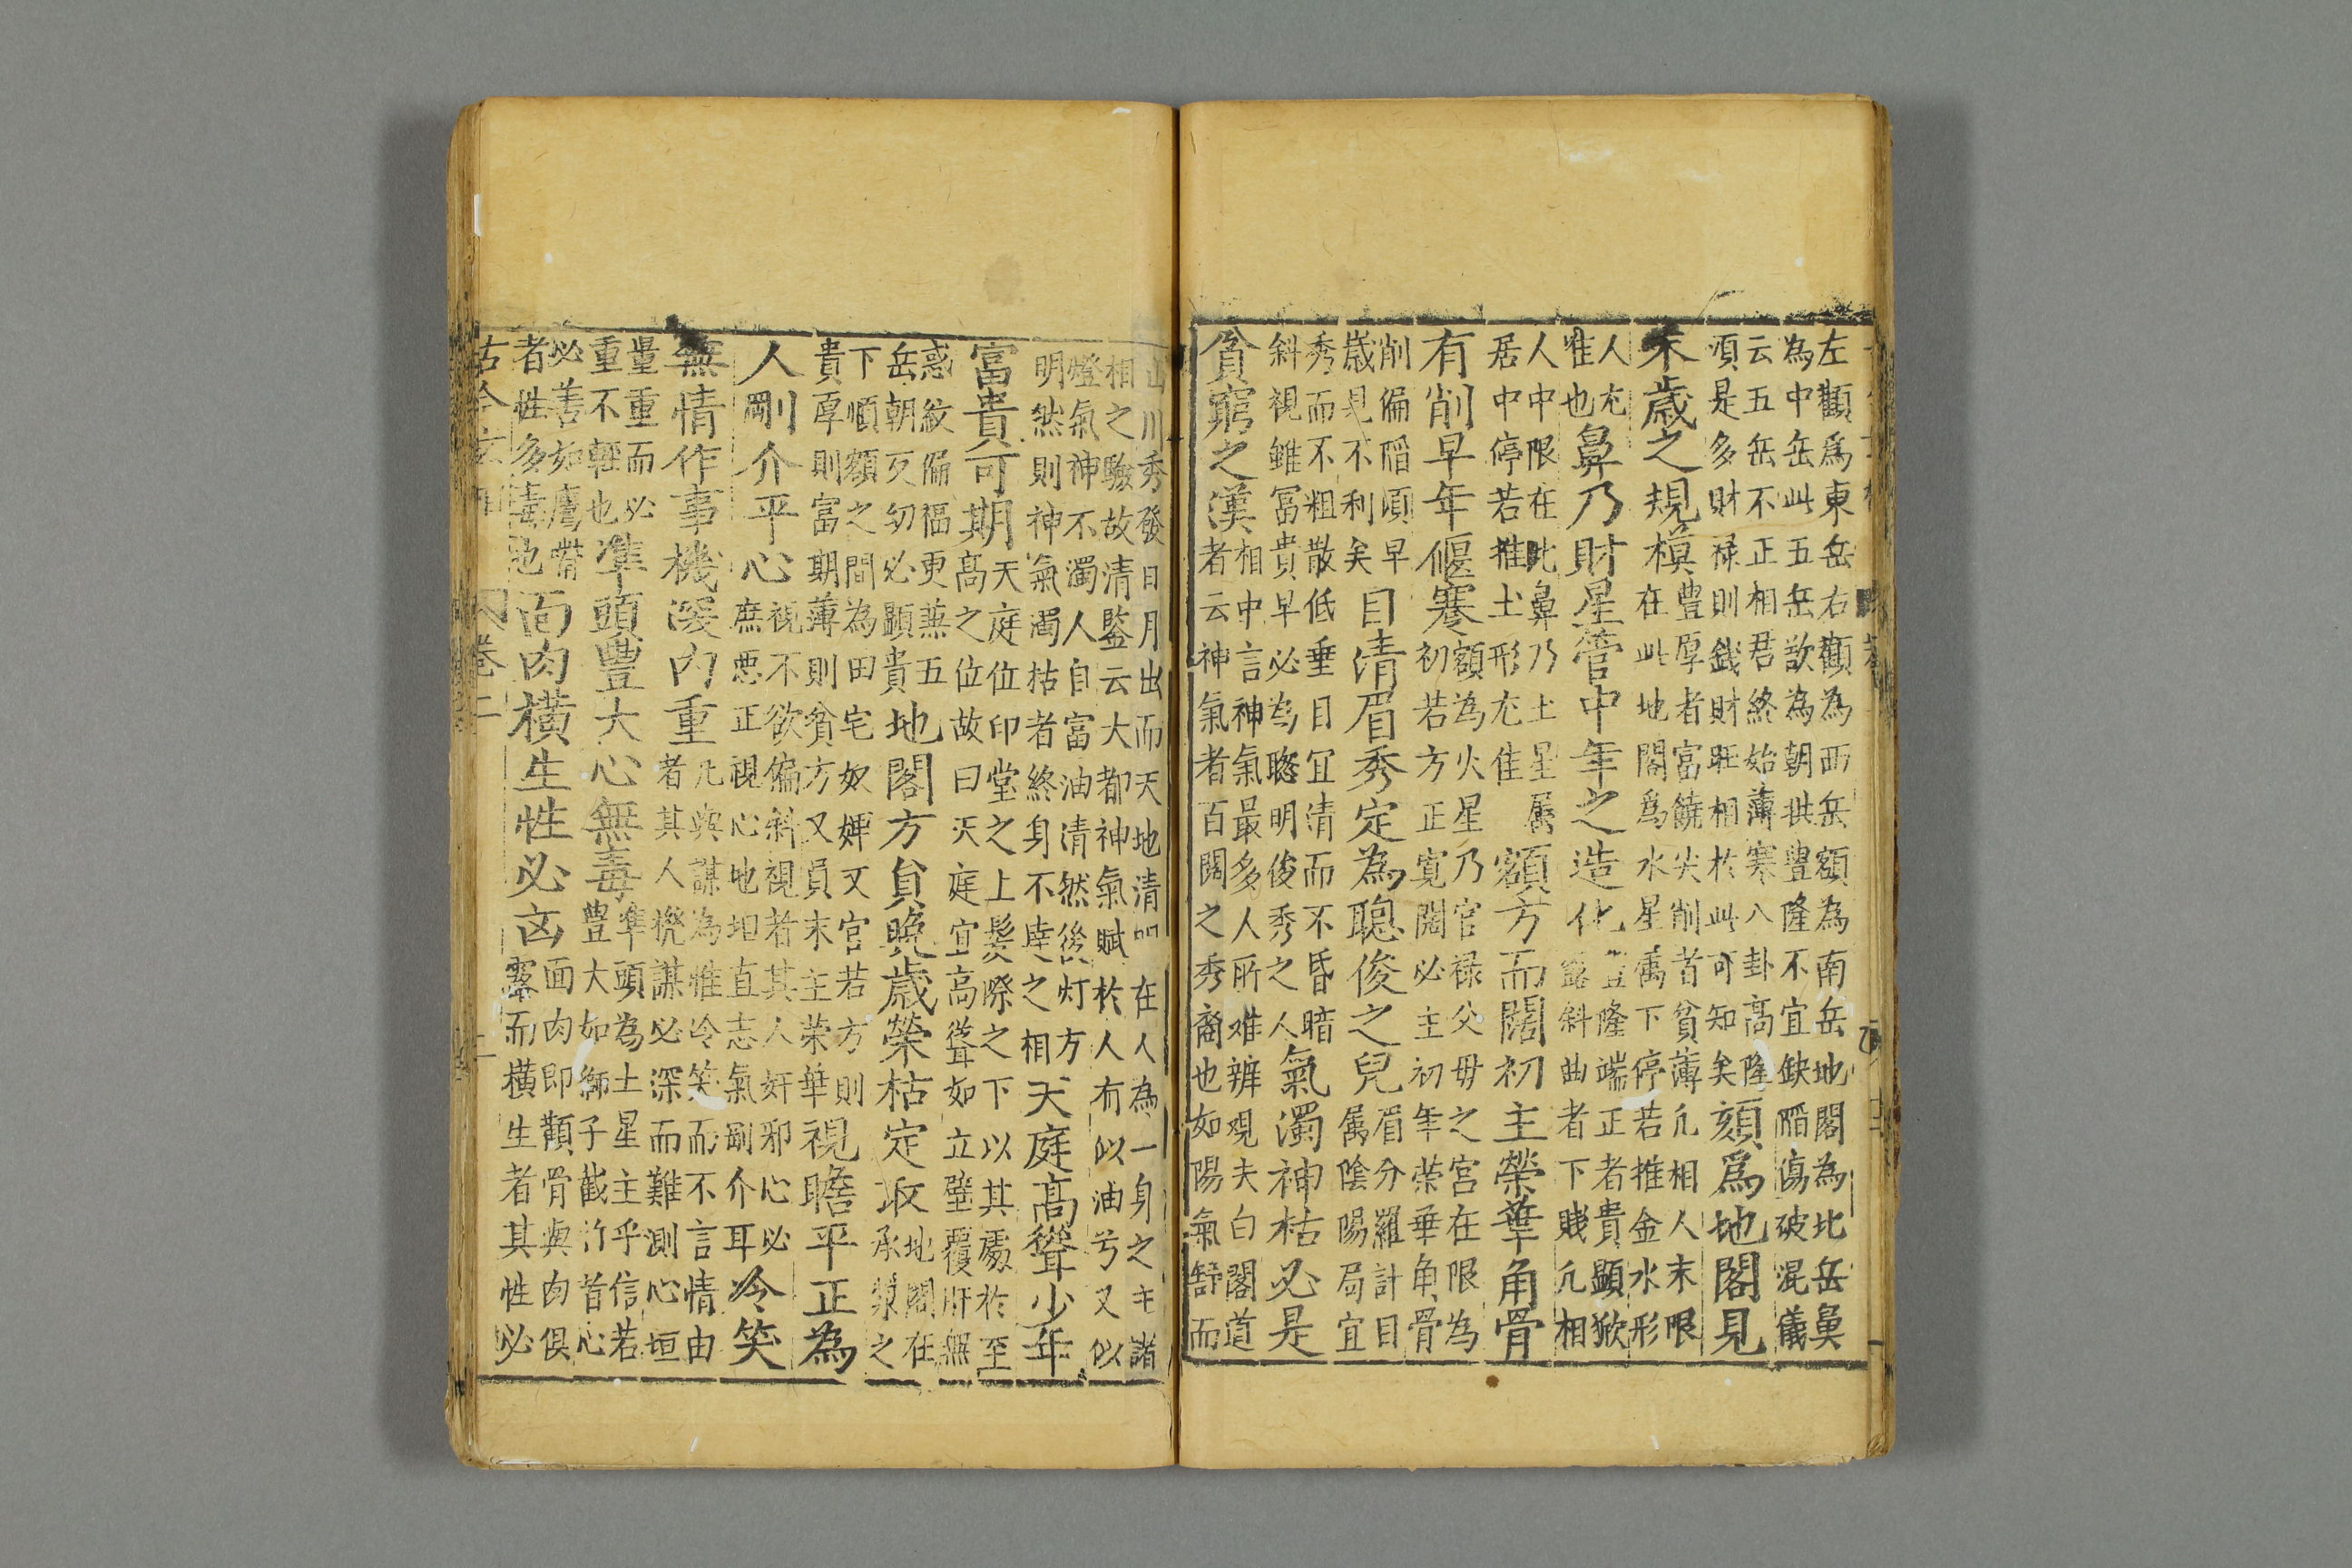 左顴爲東岳右顴為西岳額為南岳地閣為北岳鼻
為中岳此五岳欲為朝拱豊隆不宜缺䧟傷破混儀
云五岳不正相君終始薄寒八卦高隆
須是多財禄則錢財旺相於此可知矣頦爲地閣見
末歳之規模豊厚者富饒尖削者貧薄凢相人末限
在此地閣為水星属下停若推金水形
人充
唯也鼻乃財星管中年之造化豊隆端正者貴顯猴
露斜曲者下賤凢相
人中限在此鼻乃土星属
居中停若推土形充佳額方而闊初主榮華角骨
有削早年偃蹇額為火星乃官禄父母之宮在限為
初若方正寛闊必主初年荣華角骨
削偏䧟須早
歳見不利矣目清眉秀定為聰俊之兒眉分羅計目
属陰陽局宜
秀而不粗散低垂目宜清而不昏暗
斜視雖冨貴早必為聦明俊秀之人氣濁神枯必是
貧窮之漢相中言神氣最多人所难辨观夫白閣道
者云神氣者百闊之秀裔也如陽氣舒而
山川秀發日月出而天地清明在人為一身之主諸
相之驗故清鑒云大都神氣賦於人有似油兮又似
燈氣神不濁人自富油清然後灯方
明然則神氣濁枯者終身不達之相天庭高聳少年
富貴可期天庭位印堂之上髪際之下以其處於至
高之位故曰天庭宜高聳如立壁覆肝無
惑紋偏福更兼五
岳朝歹幼必顯貴地閣方貟晚歳榮枯定取地閣在
承漿之
下順頦之間為田宅奴婢又官若方則
貴厚則富期薄則貧方又員末主荣華視瞻平正為
人剛介平心視不欲偏斜視者其人奸邪心必
庶悪正視心地坦直志氣剛介耳冷笑
無情作事機深内重凡與謀為惟冷笑而不言情由
者其人機謀必深而難測心垣
量重而必
重不輕也凖頭豊大心無毒凖頭為土星主乎信若
豊大如獅子截竹首心
必善如鷹嘴
者性多毒也面肉横生性必凶面肉即顴骨與肉俱
露而横生者其性必
卷二